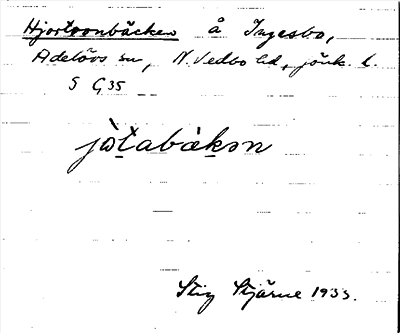 Hjortronbäcken å Ingesbo,
Adelövs sn, N. Vedbo hd, jönk. l.
S G 35
jòtabàkən
Stig Stjärne 1933.